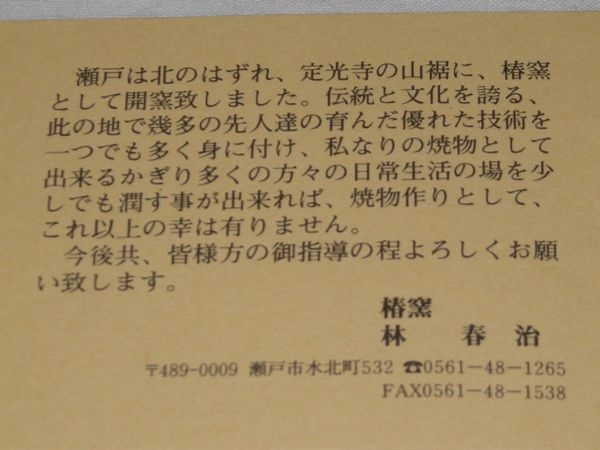 瀬戸は北のはずれ、定光寺の山裾に、椿窯
として開窯致しました。伝統と文化を誇る、
此の地で幾多の先人達の育んだ優れた技術を
一つでも多く身に付け、私なりの焼物として
出来るかぎり多くの方々の日常生活の場を少
しでも潤す事が出来れば、焼物作りとして、
これ以上の幸は有りません。
今後共、皆様方の御指導の程よろしくお願
い致します。
椿窯
林 春治
〒489-0009 瀬戸市水北町532 ☎0561-48-1265
FAX0561-48-1538